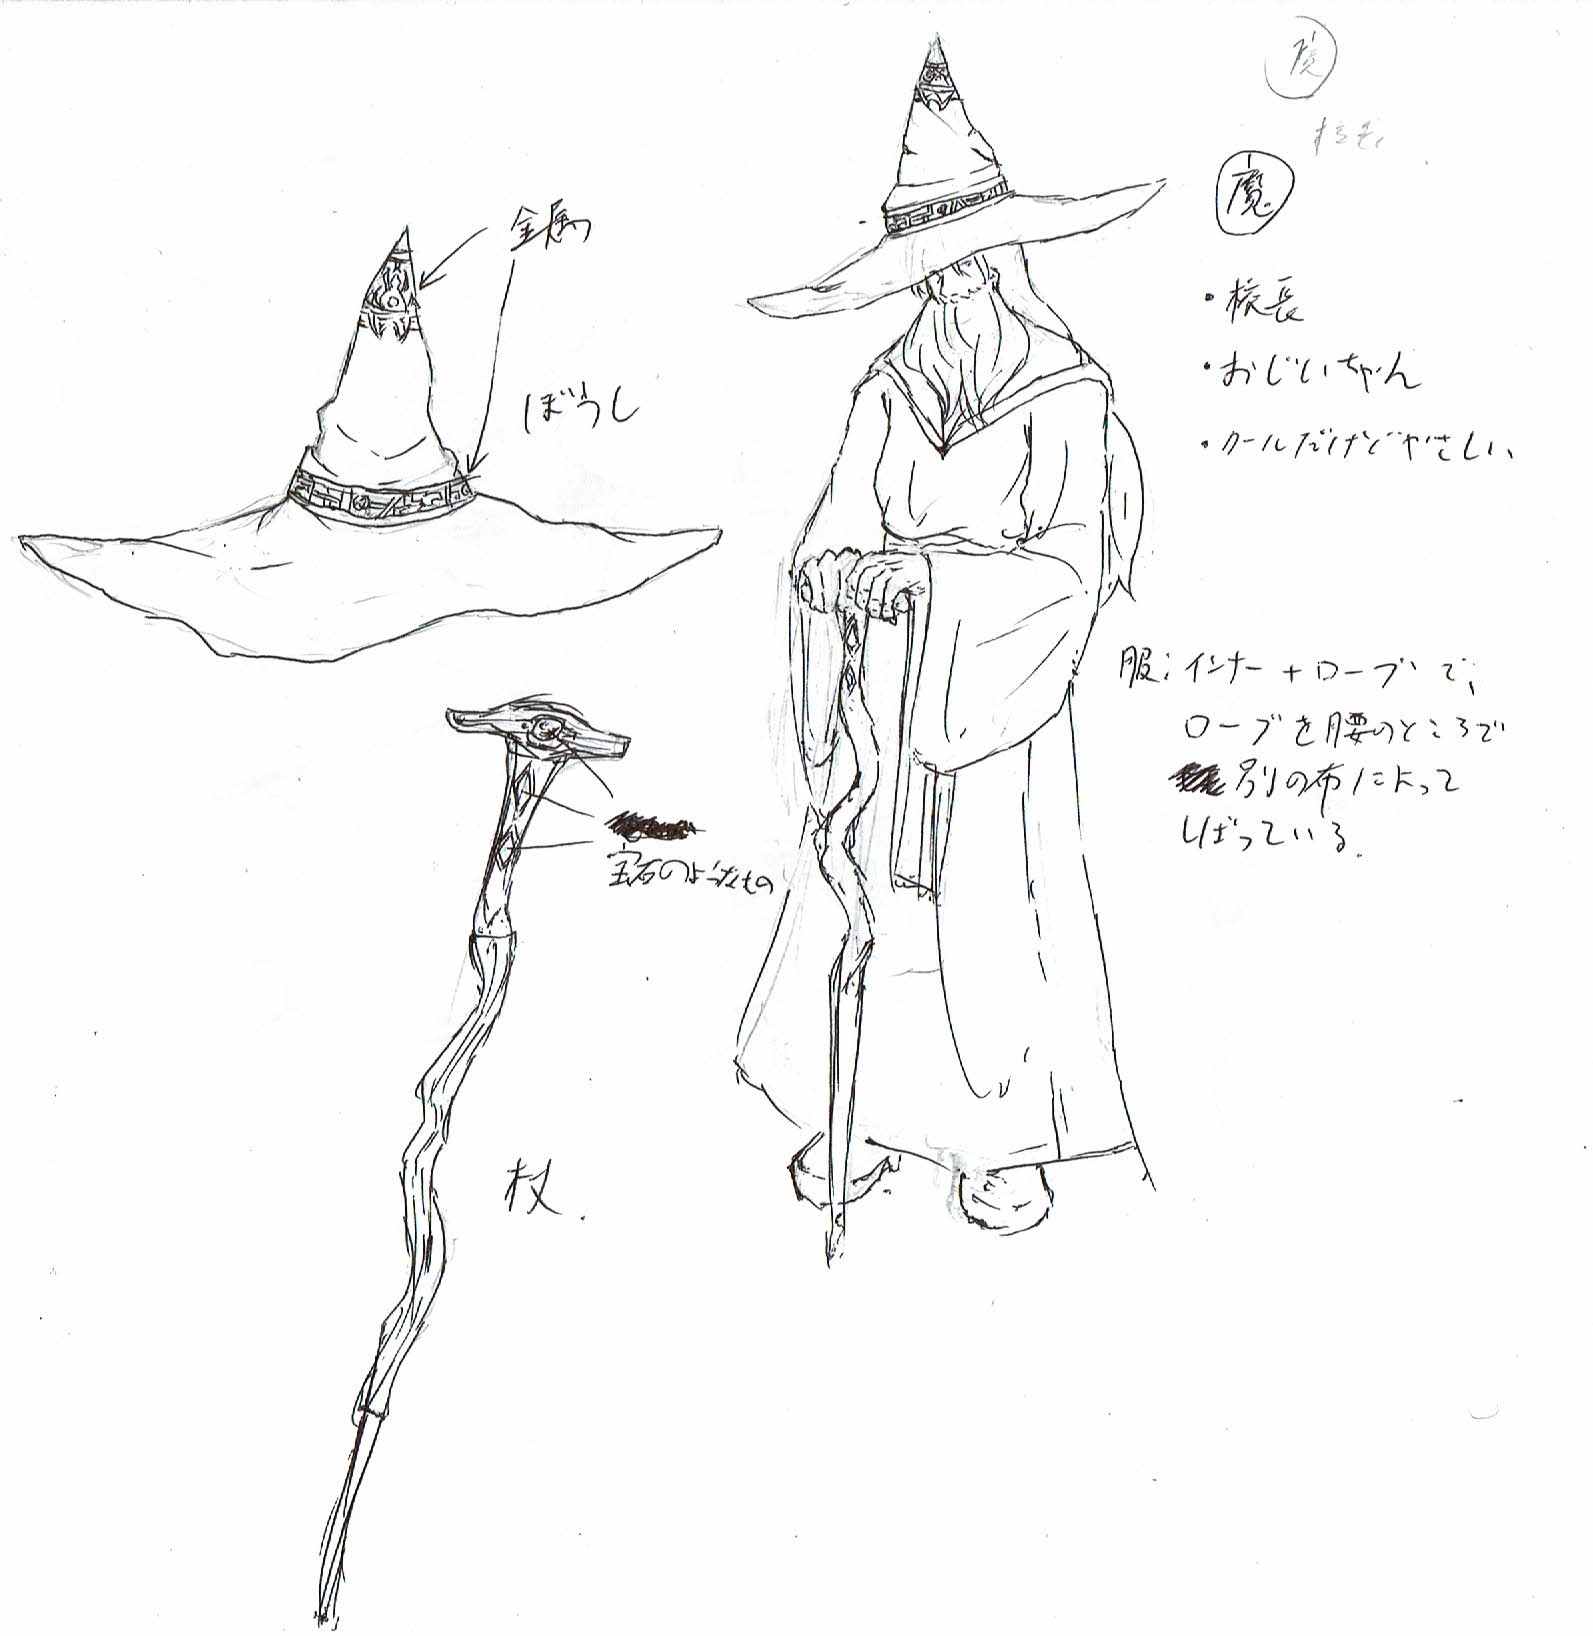 魔
魔
・校長
・おじいちゃん
・クールだけどやさしい
金属
ぼうし
服：インナー＋ローブで、
ローブを腰のところで
別の布によって
しばっている。
宝石のようなもの
杖.